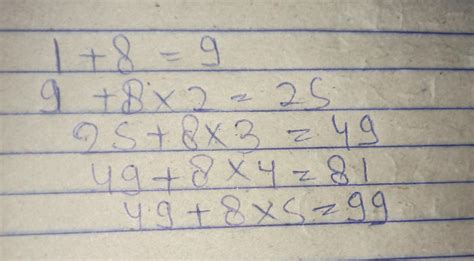 1 + 8 = 9
9 + 8 × 2 = 25
25 + 8 × 3 = 49
49 + 8 × 4 = 81
49 + 8 × 5 = 99